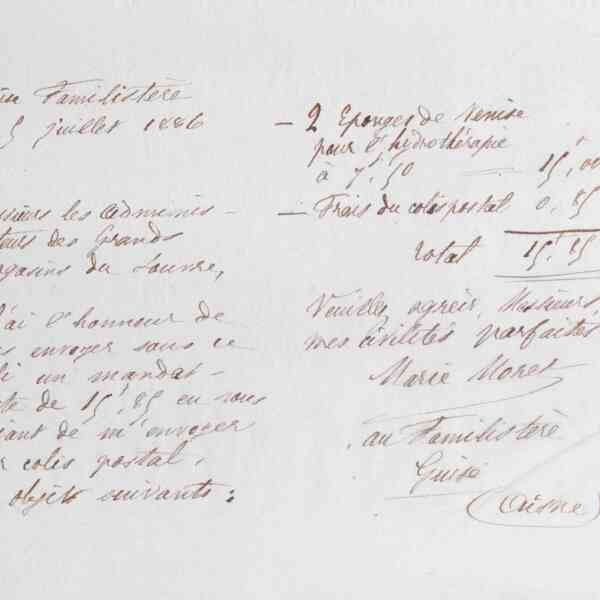 Familistère
5 juillet 1886
les adminis-
des Grands
du Louvre,
l'honneur de
envoyer sous ce
un mandat-
de 15f,85 en vous
de m'envoyer
colis postal,
objets suivants:
— 2 Eponges de Venise
pour l'hydrothérapie
à 7f,50
— Frais du colis postal 0,85
Total
Veuillez, agréer, Messieurs,
mes civilités parfaites
Marie Moret
au Familistère
Guise
(Aisne)